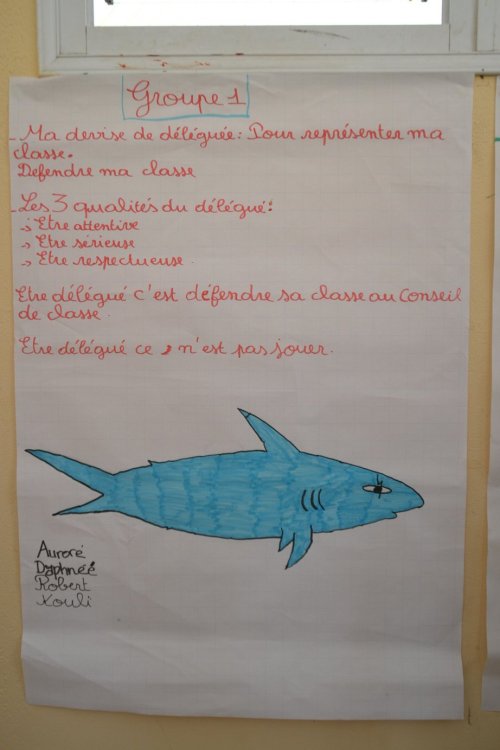 Groupe 1
- Ma devise de déléguée: Pour représenter ma
classe.
Defendre ma classe
- Les 3 qualités du délégué:
→ Etre attentive
→ Etre sérieuse
→ Etre respectueuse.
Etre délégué c'est défendre sa classe au Conseil
de classe.
Etre délégué ce , n'est pas jouer.
Auroré
Daphnéé
Robert
Xouli